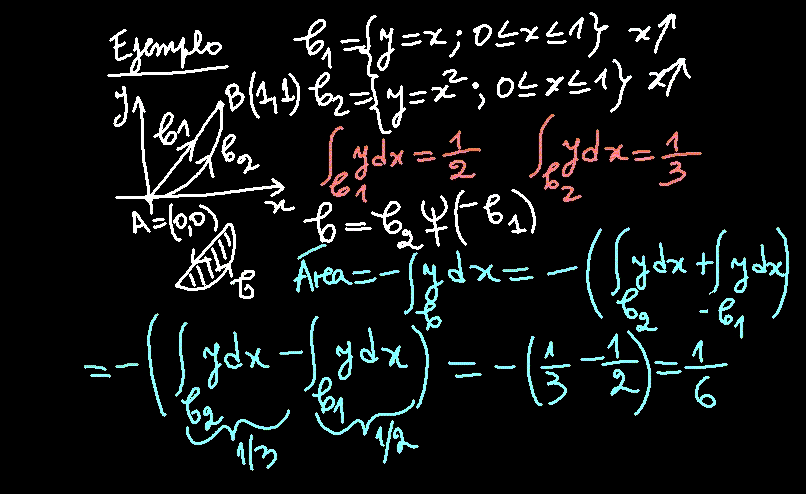 Ejemplo
𝒞₁={y=x; 0≤x≤1} x↑
𝒞₂={y=x²; 0≤x≤1} x↑
y
B(1,1)
𝒞1
𝒞2
x
A=(0,0)
∫_𝒞1 ydx = 1/2   ∫_𝒞2 ydx = 1/3
𝒞=𝒞₂ Ψ(-𝒞₁)
𝒞
Área=-∫_𝒞 ydx = -(∫_𝒞2 ydx + ∫_-𝒞1 ydx)
=-(∫_𝒞2 ydx - ∫_𝒞1 ydx) = -(1/3 - 1/2) = 1/6
1/3 1/2